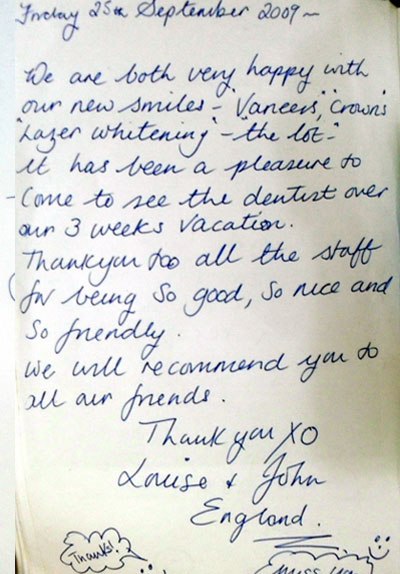 Friday 25th September 2009 ~
We are both very happy with
our new smiles - "Vaneers", "Crowns"
"Lazer whitening" - "the lot" -
It has been a pleasure to
Come to see the dentist over
our 3 weeks vacation.
Thankyou too all the staff
for being so good, so nice and
so friendly.
We will recommend you to
all our friends.
Thank you XO
Louise & John
England.
Thanks!
miss you